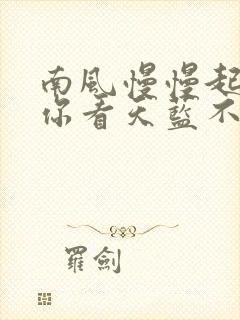 南風慢慢起
你看天藍不
羅劍